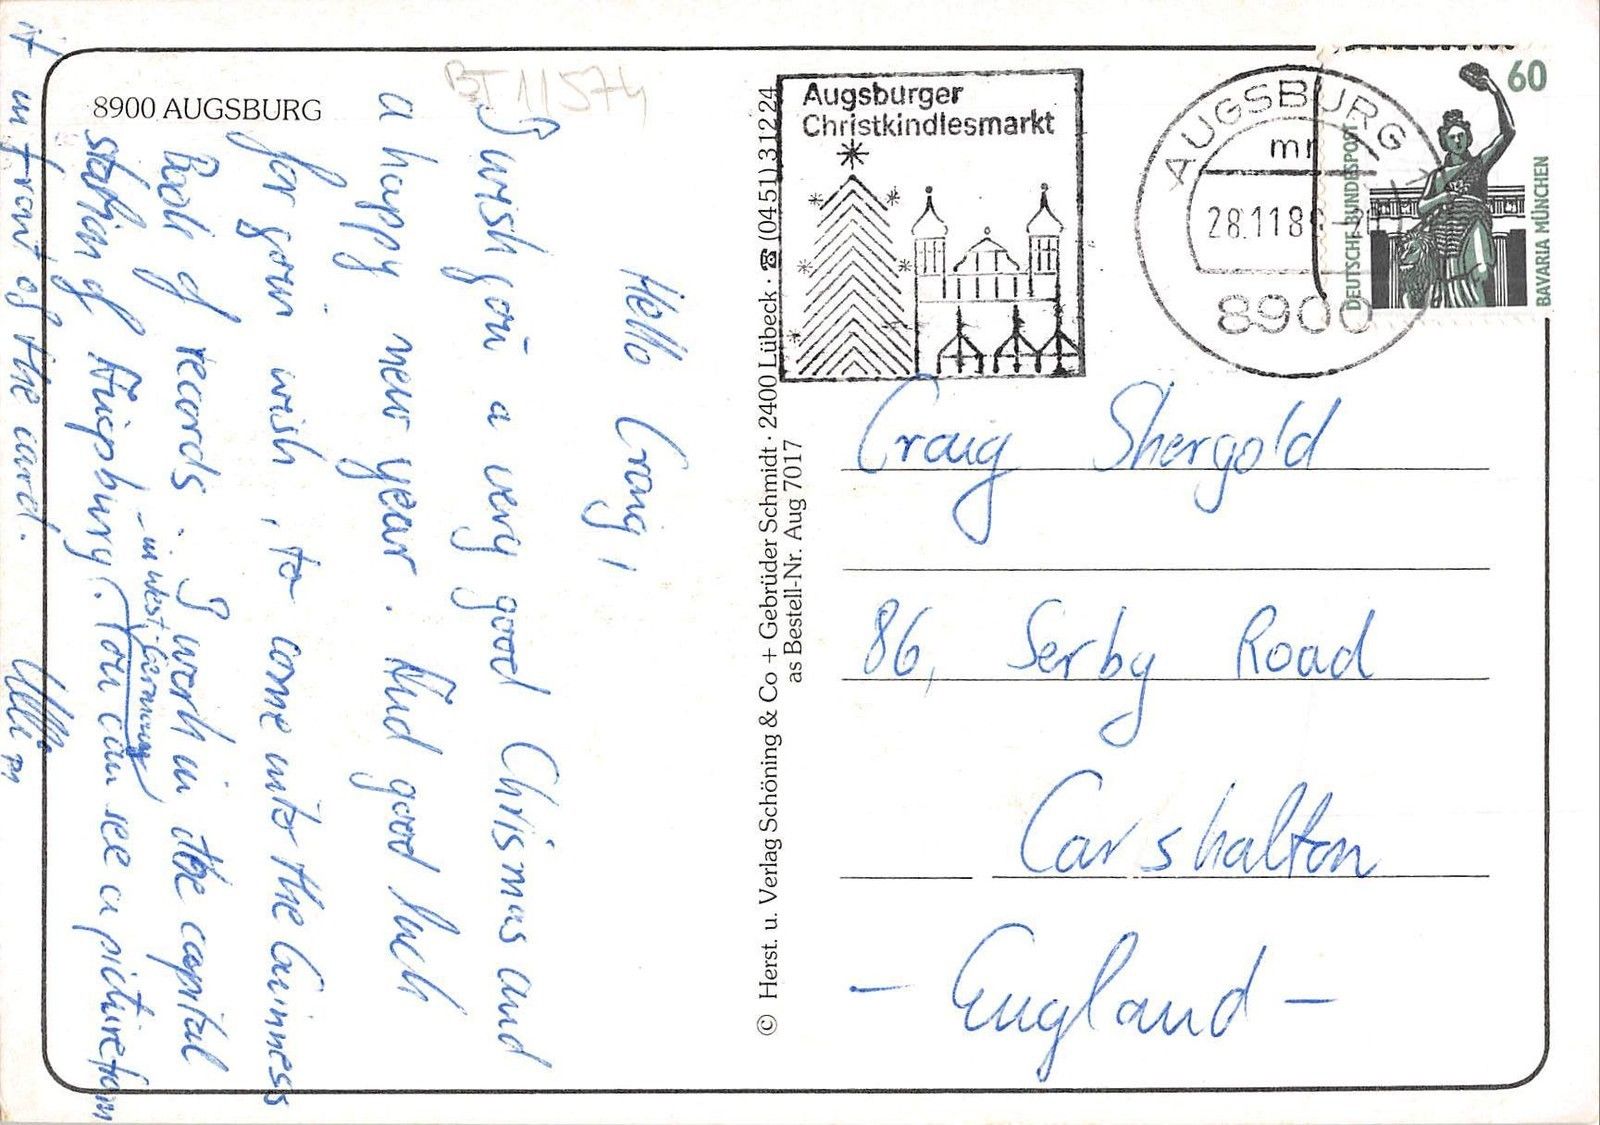 8900 AUGSBURG
BT 11574
Hello Craig,
I wish you a very good Chrismas and
a happy new year. And good luck
for your wish, to come into the Guinness
Book of records. I work in the capital
- in West-Germany
station of Augsburg. You can see a picture from
it in front of the card.
© Herst. u. Verlag Schöning & Co + Gebrüder Schmidt · 2400 Lübeck · ☎ (0451) 31224
as Bestell-Nr. Aug 7017
Augsburger
Christkindlesmarkt
AUGSBURG
mr
28.11.89
8900
60
DEUTSCHE BUNDESPOST
BAVARIA MÜNCHEN
Craig Shergold
86, Serby Road
Carshalton
- England -